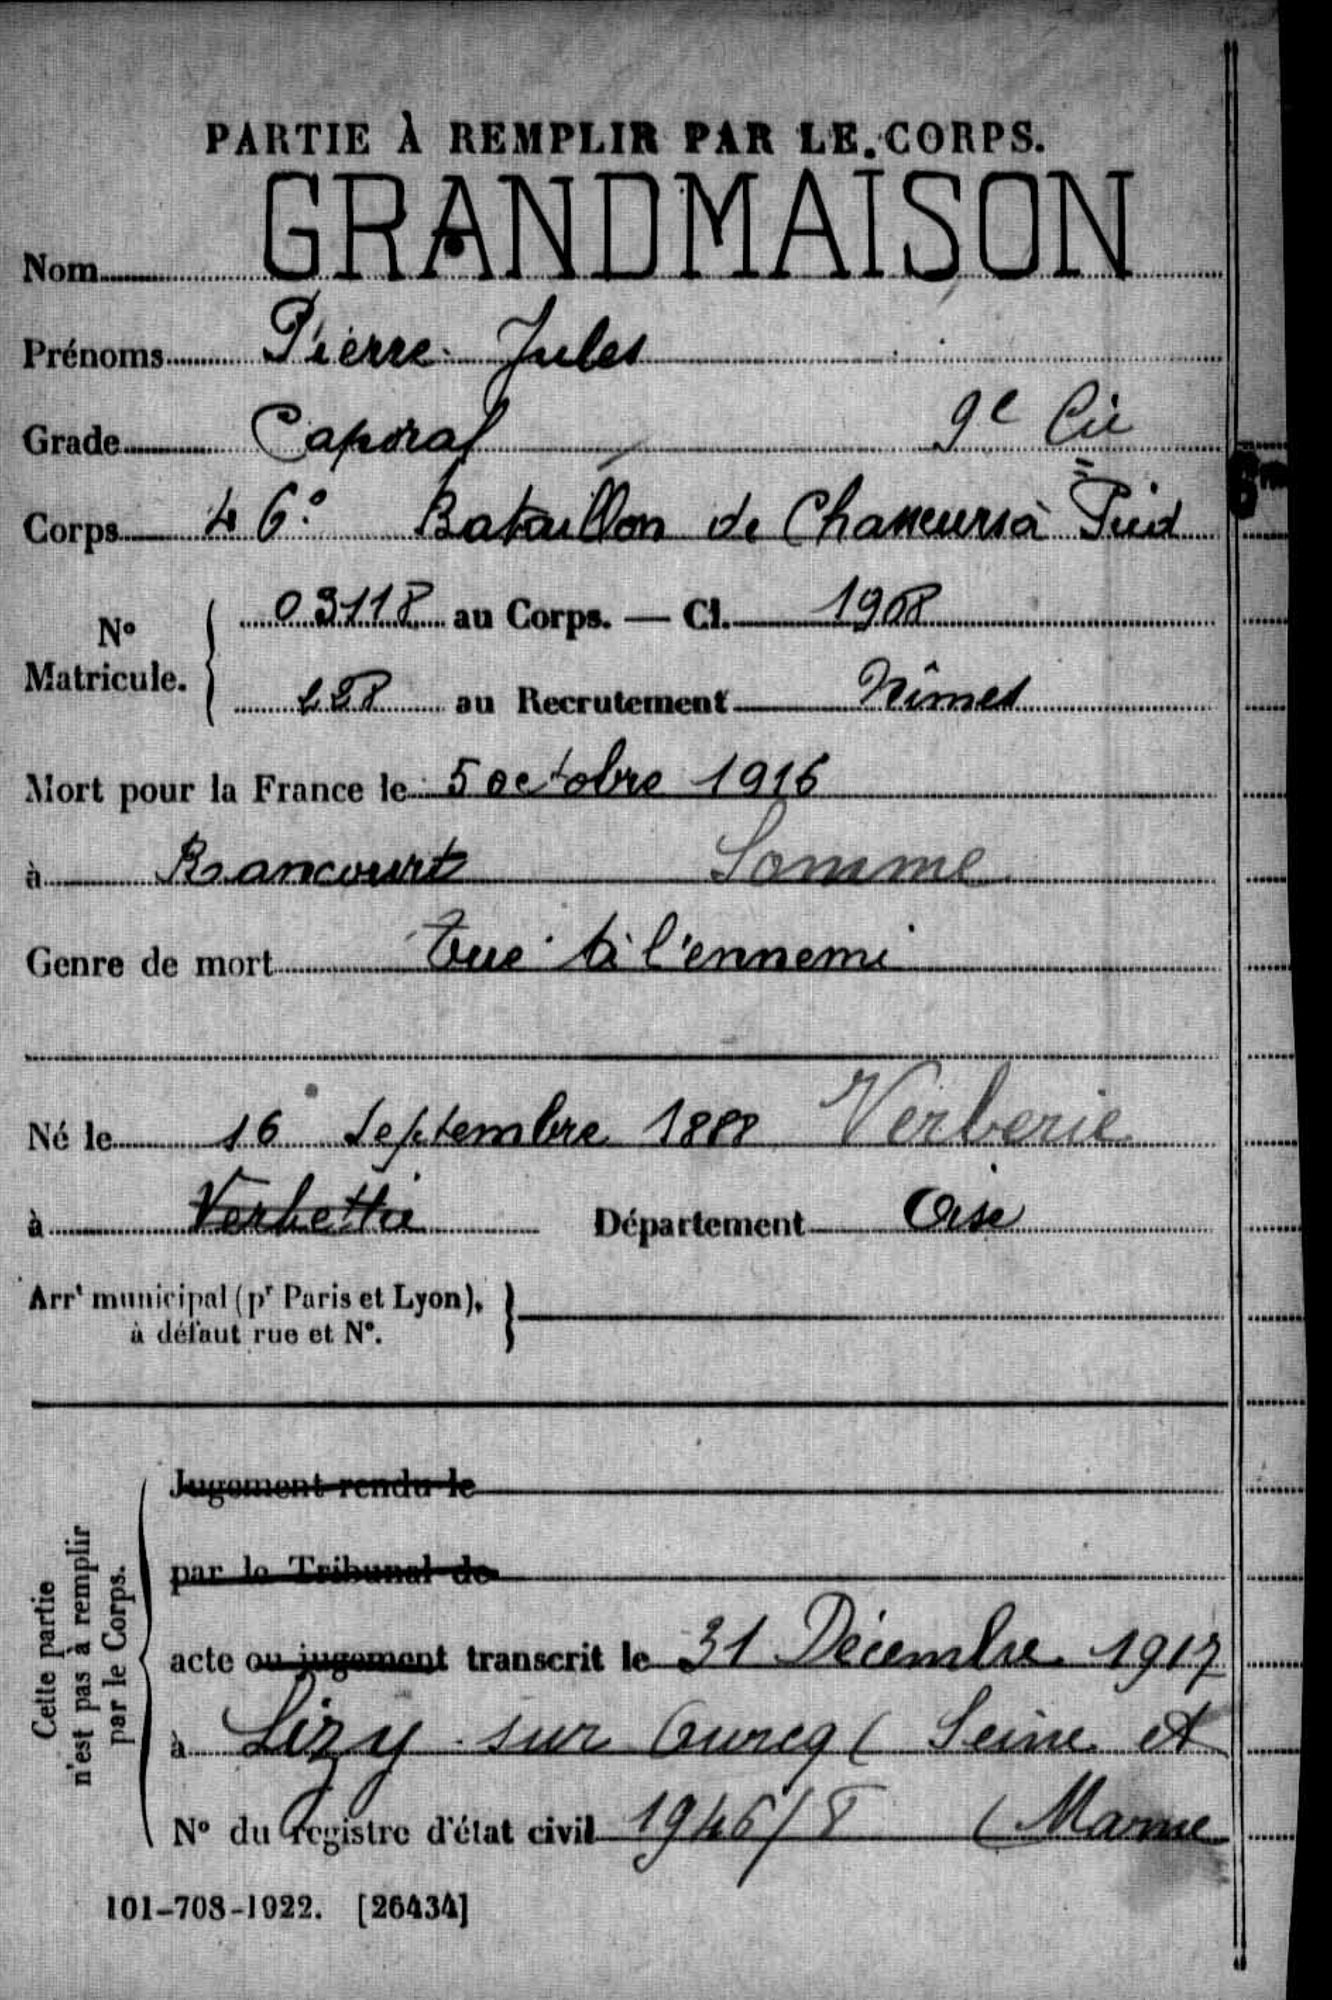 PARTIE À REMPLIR PAR LE CORPS.
Nom GRANDMAISON
Prénoms Pierre Jules
Grade Caporal 9e Cie
Corps 46e Bataillon de Chasseurs à Pied
N° Matricule. 03118 au Corps. — Cl. 1908
au Recrutement Nîmes
Mort pour la France le 5 octobre 1916
à Rancourt Somme
Genre de mort tué à l'ennemi
Né le 16 Septembre 1888 Verberie
à Département Oise
Arrt municipal (pr Paris et Lyon),
à défaut rue et N°.
Cette partie
n'est pas à remplir
par le Corps.
Jugement rendu le
par le Tribunal de
acte ou jugement transcrit le 31 Décembre 1917
à Lizy sur Ourcq (Seine et
N° du registre d'état civil 1946/8 (Marne
101-708-1922. [26434]